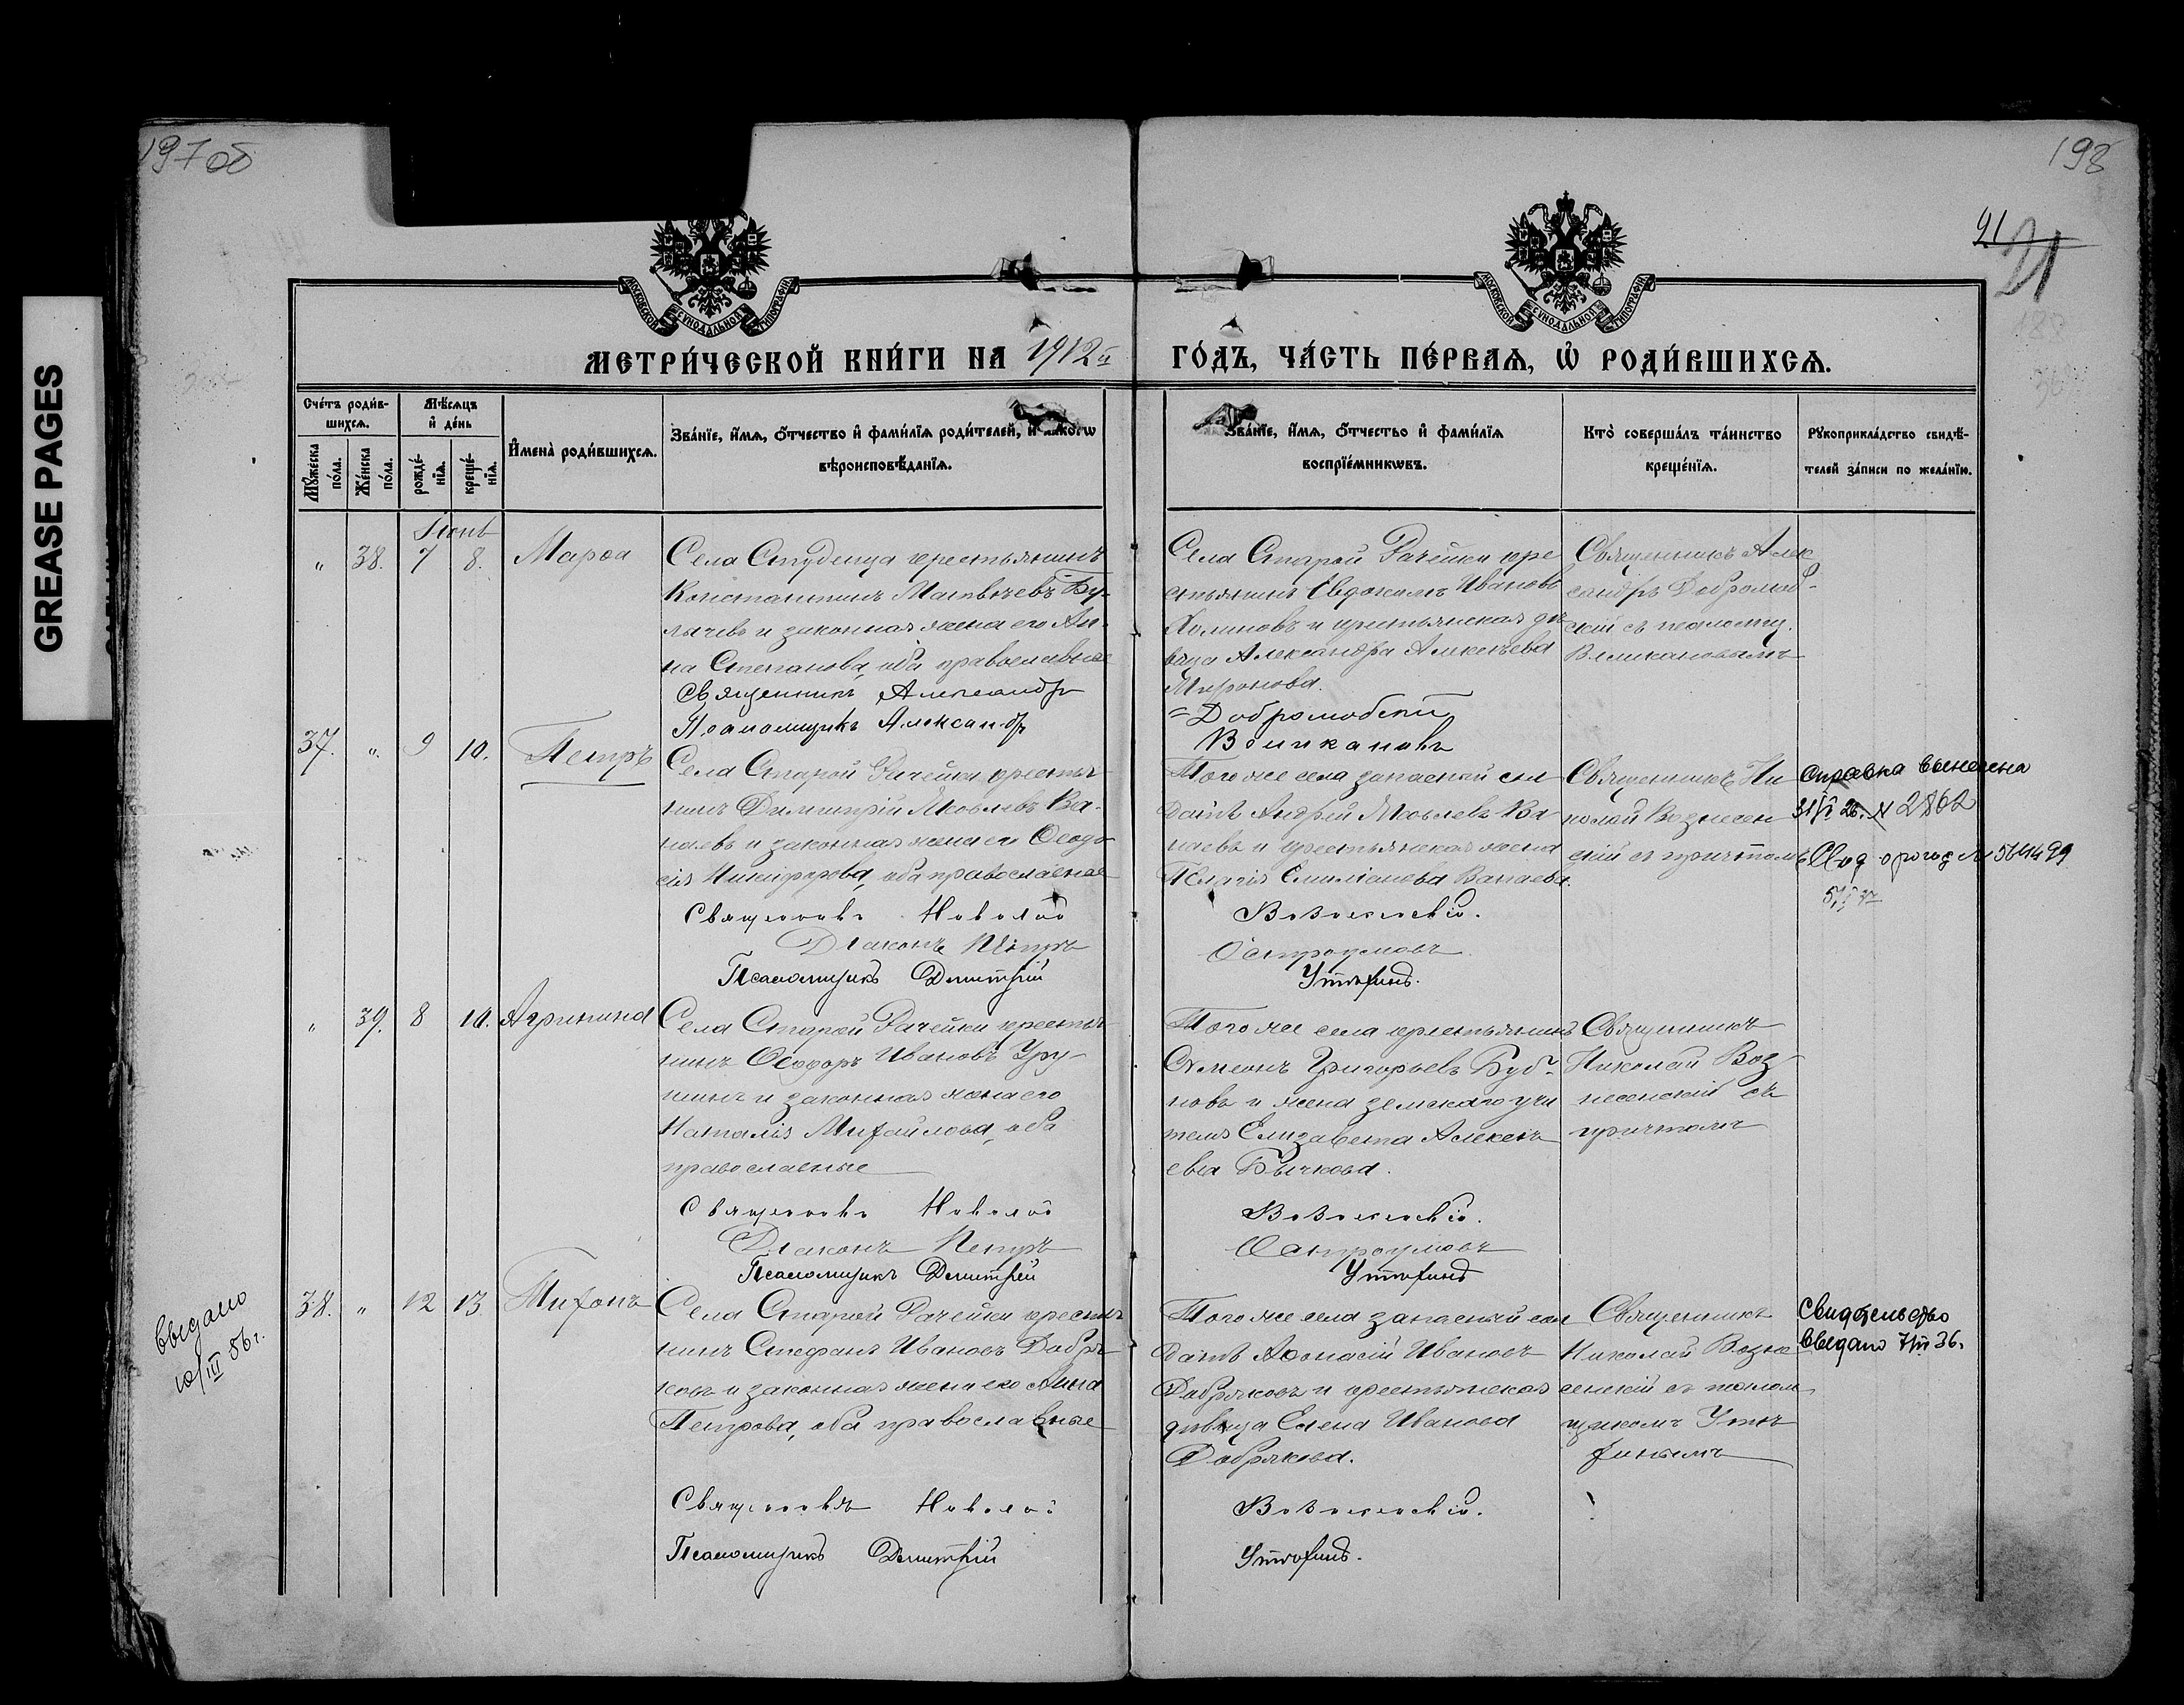 GREASE PAGES
197 об
198
21
21
МЕТРИ́ЧЕСКОЙ КНИ́ГИ НА 1912й ГО́ДЪ, ЧА́СТЬ ПЕ́РВАѦ, Ѡ҆ РОДИ́ВШИХСѦ.
МОСКОВСКОЙ СѴНОДАЛЬНОЙ ТИПОГРАФІИ
МОСКОВСКОЙ СѴНОДАЛЬНОЙ ТИПОГРАФІИ
Сче́тъ роди́в-
шихсѧ.
Мꙋ́жеска по́ла.
Же́нска по́ла.
Мѣ́сѧцъ
и҆ де́нь
рожде́-
нїѧ.
креще́-
нїѧ.
И҆мена̀ роди́вшихсѧ.
Зва́нїе, и҆́мѧ, ѻ҆́тчество и҆ фами́лїѧ роди́телей, и҆ како́гѡ
вѣроисповѣ́данїѧ.
Зва́нїе, и҆́мѧ, ѻ҆́тчество и҆ фами́лїѧ
воспрїе́мникѡвъ.
Кто̀ соверша́лъ та́инство
креще́нїѧ.
Рꙋкоприкла́дство свидѣ́-
телей за́писи по жела́нїю.
Іюнь
" 38. 7 8. Марѳа
Села Студенца крестьянинъ
Константинъ Матвѣевъ Бу-
лычевъ и законная жена его Ан-
на Степанова, оба православные
Священникъ Александръ
Псаломщикъ Александръ
Села Старой Рачейки кре
стьянинъ Евдокимъ Ивановъ
Холиновъ и крестьянская дѣ
вица Александра Алексѣева
Миронова.
Добролюбскій
Великановъ
Священникъ Алек
сандръ Добролюб-
скій съ псаломщ.
Великановымъ
37. " 9 10. Петръ
Села Старой Рачейки крестья
нинъ Димитрій Яковлевъ Ва-
наевъ и законная жена его Ѳеодо
сія Никифорова, оба православные
Священникъ Николай
Діаконъ Петръ
Псаломщикъ Дмитрій
Того же села запасный сол
датъ Андрей Яковлевъ Ва
наевъ и крестьянская жена
Пелагія Емиліанова Ванаева.
Вознесенскій.
Остроумовъ
Утѣхинъ.
Священникъ Ни
колай Вознесен
скій съ причтомъ
Справка вынесена
2862
№ 564499
" 39. 8 10. Агрипина
Села Старой Рачейки крестья
нинъ Ѳеодоръ Ивановъ Уру-
шинъ и законная жена его
Наталія Михайлова, оба
православные
Священникъ Николай
Діаконъ Петръ
Псаломщикъ Дмитрій
Того же села крестьянинъ
Сѵмеонъ Григорьевъ Буб-
новъ и жена земскаго учи
теля Елизавета Алексѣ
ева Бычкова.
Вознесенскій.
Остроумовъ
Утѣхинъ
Священникъ
Николай Воз-
несенскій съ
причтомъ
38. " 12 13. Тихонъ
выдано
10/III 56г.
Села Старой Рачейки крестья
нинъ Стефанъ Ивановъ Добря
ковъ и законная жена его Анна
Петрова, оба православные
Священникъ Николай
Псаломщикъ Дмитрій
Того же села запасный сол
датъ Аѳонасій Ивановъ
Добряковъ и крестьянская
дѣвица Елена Иванова
Добрякова.
Вознесенскій.
Утѣхинъ.
Священникъ
Николай Возне
сенскій съ псалом
щикомъ Утѣ
хинымъ
Свидетельство
выдано 7/VI 36.